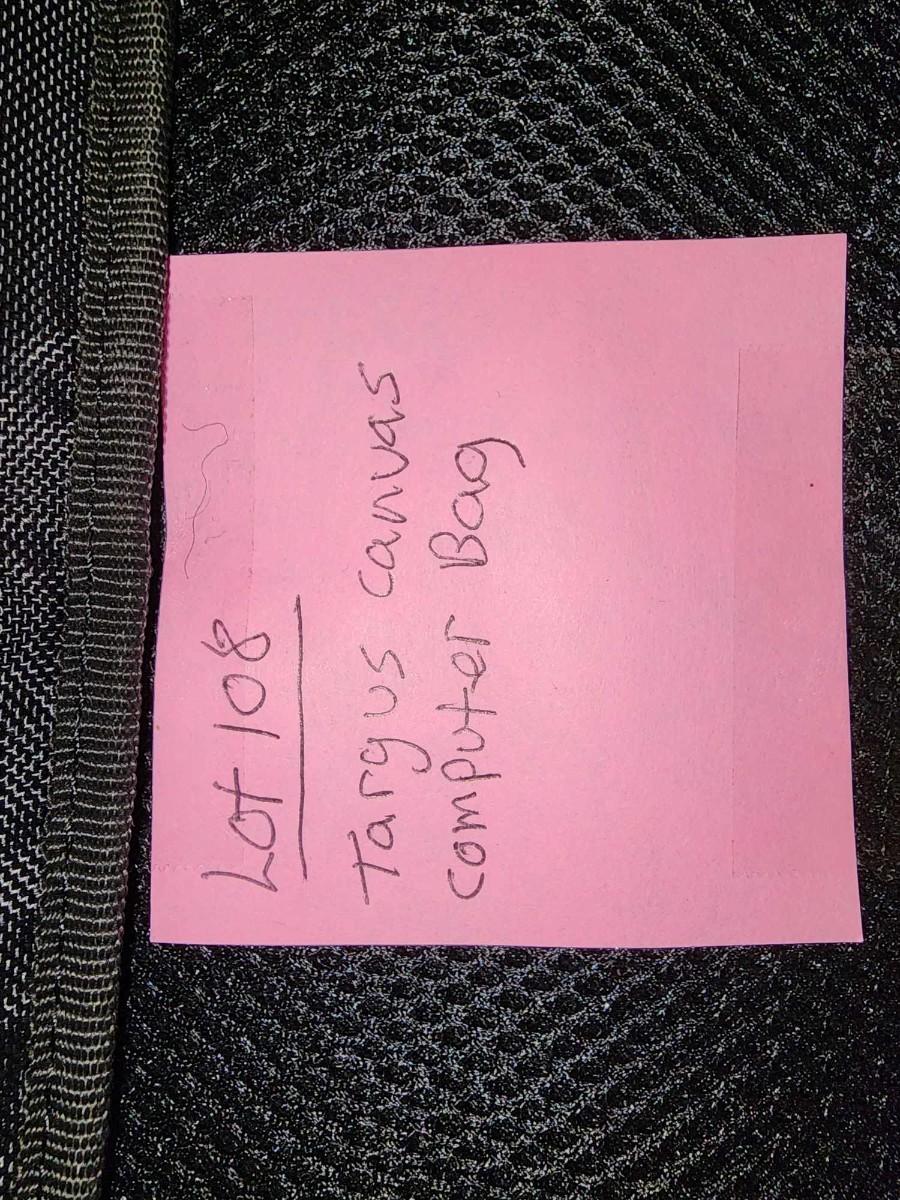 Lot 108
Targus canvas
computer Bag